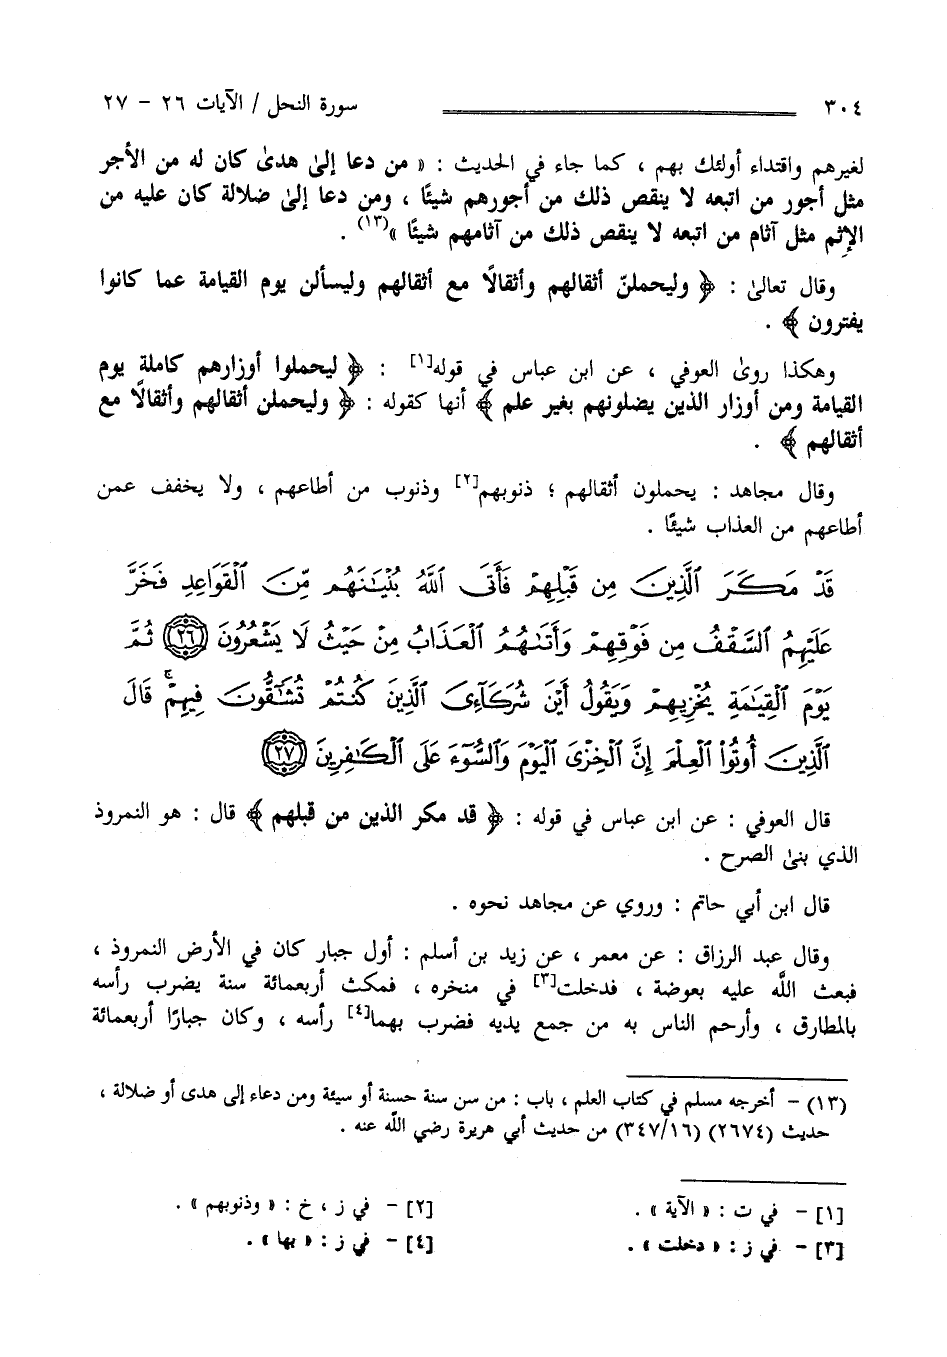 ٣٠٤ سورة النحل / الآيات ٢٦ - ٢٧
لغيرهم واقتداء أولئك بهم ، كما جاء في الحديث : « من دعا إلىٰ هدىٰ كان له من الأجر
مثل أجور من اتبعه لا ينقص ذلك من أجورهم شيئًا ، ومن دعا إلىٰ ضلالة كان عليه من
الإثم مثل آثام من اتبعه لا ينقص ذلك من آثامهم شيئًا »(١٣) .
وقال تعالىٰ : ﴿ وليحملنّ أثقالهم وأثقالًا مع أثقالهم وليسألن يوم القيامة عما كانوا
يفترون ﴾ .
وهكذا روىٰ العوفي ، عن ابن عباس في قوله[١] : ﴿ ليحملوا أوزارهم كاملة يوم
القيامة ومن أوزار الذين يضلونهم بغير علم ﴾ أنها كقوله : ﴿ وليحملن أثقالهم وأثقالًا مع
أثقالهم ﴾ .
وقال مجاهد : يحملون أثقالهم ؛ ذنوبهم[٢] وذنوب من أطاعهم ، ولا يخفف عمن
أطاعهم من العذاب شيئًا .
قَدْ مَكَرَ ٱلَّذِينَ مِن قَبْلِهِمْ فَأَتَى ٱللَّهُ بُنْيَـٰنَهُم مِّنَ ٱلْقَوَاعِدِ فَخَرَّ
عَلَيْهِمُ ٱلسَّقْفُ مِن فَوْقِهِمْ وَأَتَىٰهُمُ ٱلْعَذَابُ مِنْ حَيْثُ لَا يَشْعُرُونَ ٢٦ ثُمَّ
يَوْمَ ٱلْقِيَـٰمَةِ يُخْزِيهِمْ وَيَقُولُ أَيْنَ شُرَكَآءِىَ ٱلَّذِينَ كُنتُمْ تُشَـٰٓقُّونَ فِيهِمْ ۚ قَالَ
ٱلَّذِينَ أُوتُوا۟ ٱلْعِلْمَ إِنَّ ٱلْخِزْىَ ٱلْيَوْمَ وَٱلسُّوٓءَ عَلَى ٱلْكَـٰفِرِينَ ٢٧
قال العوفي : عن ابن عباس في قوله : ﴿ قد مكر الذين من قبلهم ﴾ قال : هو النمروذ
الذي بنىٰ الصرح .
قال ابن أبي حاتم : وروي عن مجاهد نحوه .
وقال عبد الرزاق : عن معمر ، عن زيد بن أسلم : أول جبار كان في الأرض النمروذ ،
فبعث اللَّه عليه بعوضة ، فدخلت[٣] في منخره ، فمكث أربعمائة سنة يضرب رأسه
بالمطارق ، وأرحم الناس به من جمع يديه فضرب بهما[٤] رأسه ، وكان جبارًا أربعمائة
(١٣) - أخرجه مسلم في كتاب العلم ، باب : من سن سنة حسنة أو سيئة ومن دعاء إلى هدى أو ضلالة ،
حديث (٢٦٧٤) (٣٤٧/١٦) من حديث أبي هريرة رضي اللَّه عنه .
[١] - في ت : « الآية » . [٢] - في ز ، خ : « وذنوبهم » .
[٣] - في ز : « دخلت » . [٤] - في ز : « بها » .